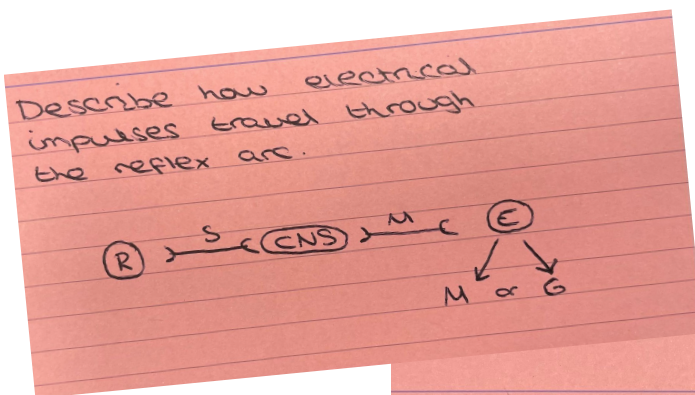 Describe how electrical
impulses travel through
the reflex arc.
R S CNS M E
M or G